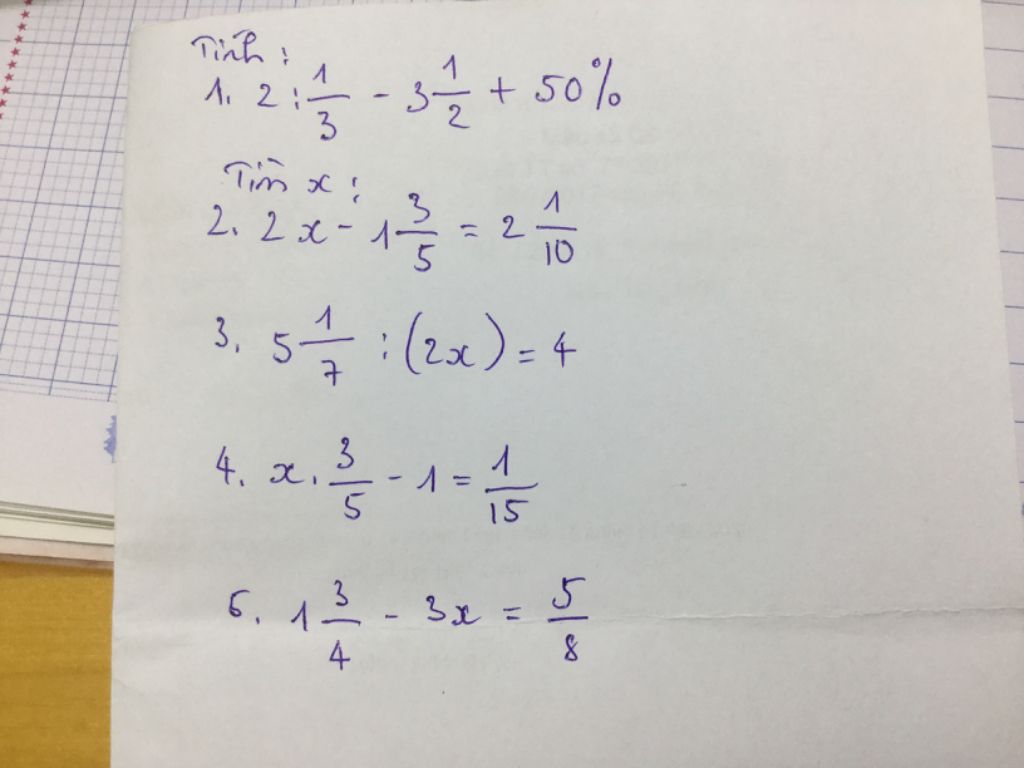 Tính :
1. 2 : 1/3 - 3 1/2 + 50%
Tìm x :
2. 2x - 1 3/5 = 2 1/10
3. 5 1/7 : (2x) = 4
4. x . 3/5 - 1 = 1/15
5. 1 3/4 - 3x = 5/8